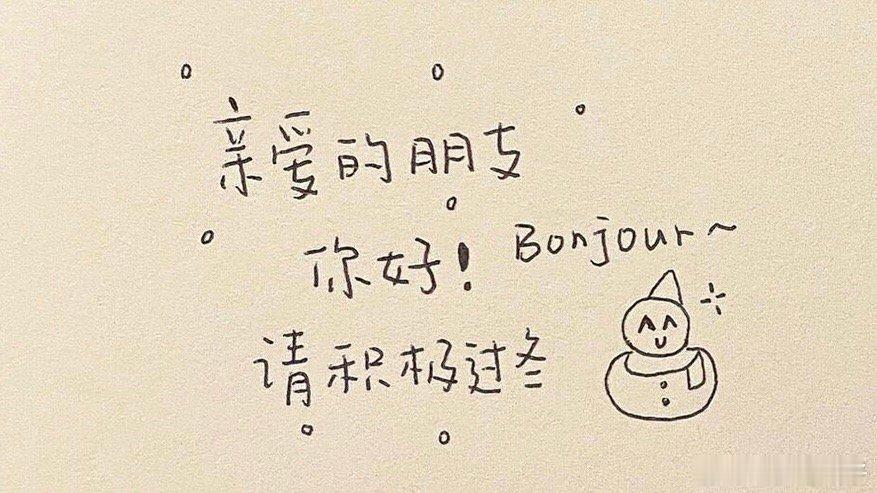 亲爱的朋友
你好！ Bonjour~
请积极过冬